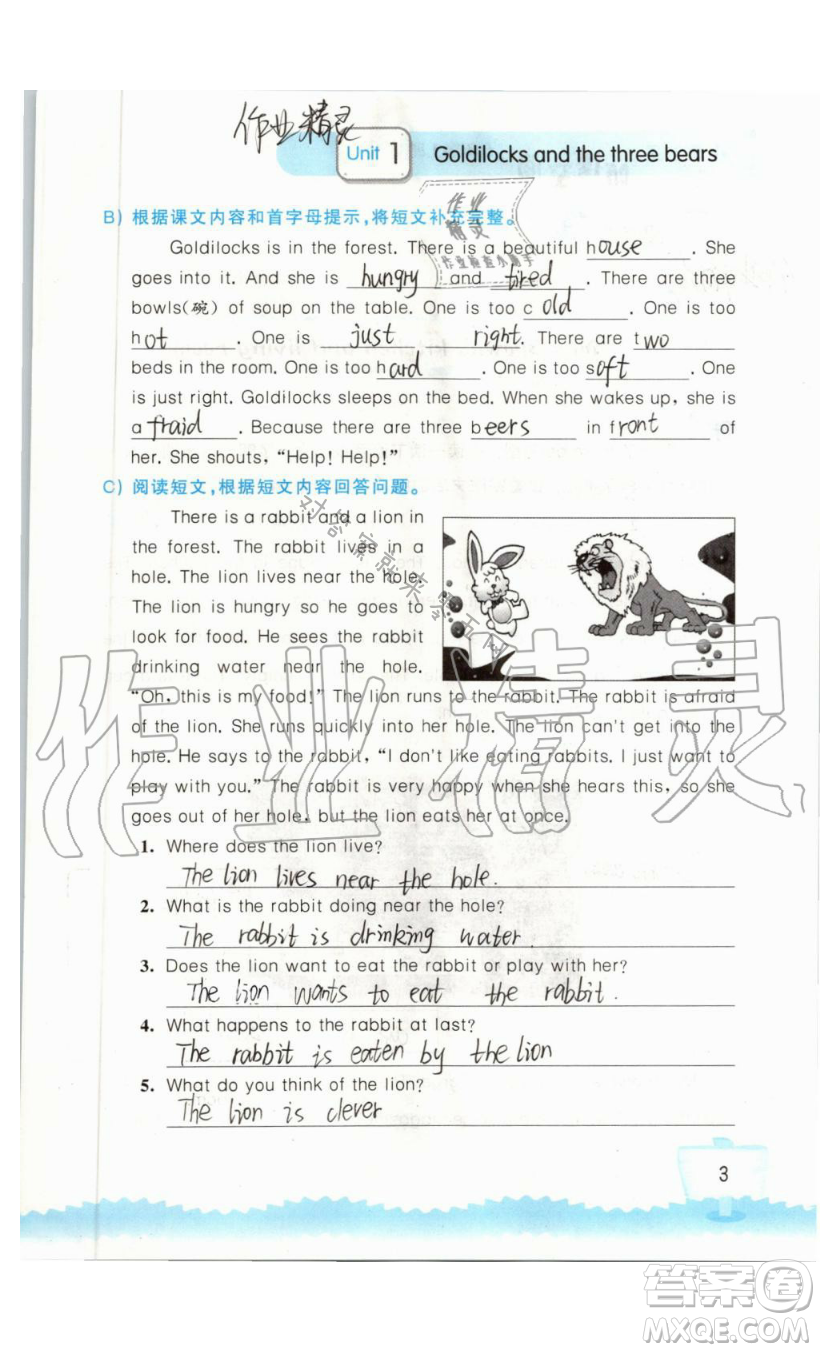 作业精灵
Unit 1 Goldilocks and the three bears
B) 根据课文内容和首字母提示,将短文补充完整。
Goldilocks is in the forest. There is a beautiful house . She
goes into it. And she is hungry and tired . There are three
bowls(碗) of soup on the table. One is too c old . One is too
hot . One is just right. There are two
beds in the room. One is too hard . One is too soft . One
is just right. Goldilocks sleeps on the bed. When she wakes up, she is
afraid . Because there are three beers in front of
her. She shouts, “Help! Help!”
C) 阅读短文,根据短文内容回答问题。
There is a rabbit and a lion in
the forest. The rabbit lives in a
hole. The lion lives near the hole.
The lion is hungry so he goes to
look for food. He sees the rabbit
drinking water near the hole.
“Oh, this is my food!” The lion runs to the rabbit. The rabbit is afraid
of the lion. She runs quickly into her hole. The lion can't get into the
hole. He says to the rabbit, “I don't like eating rabbits. I just want to
play with you.” The rabbit is very happy when she hears this, so she
goes out of her hole, but the lion eats her at once.
1. Where does the lion live?
The lion lives near the hole.
2. What is the rabbit doing near the hole?
The rabbit is drinking water.
3. Does the lion want to eat the rabbit or play with her?
The lion wants to eat the rabbit.
4. What happens to the rabbit at last?
The rabbit is eaten by the lion
5. What do you think of the lion?
The lion is clever
3
作业精灵
答案圈
MXQE.COM